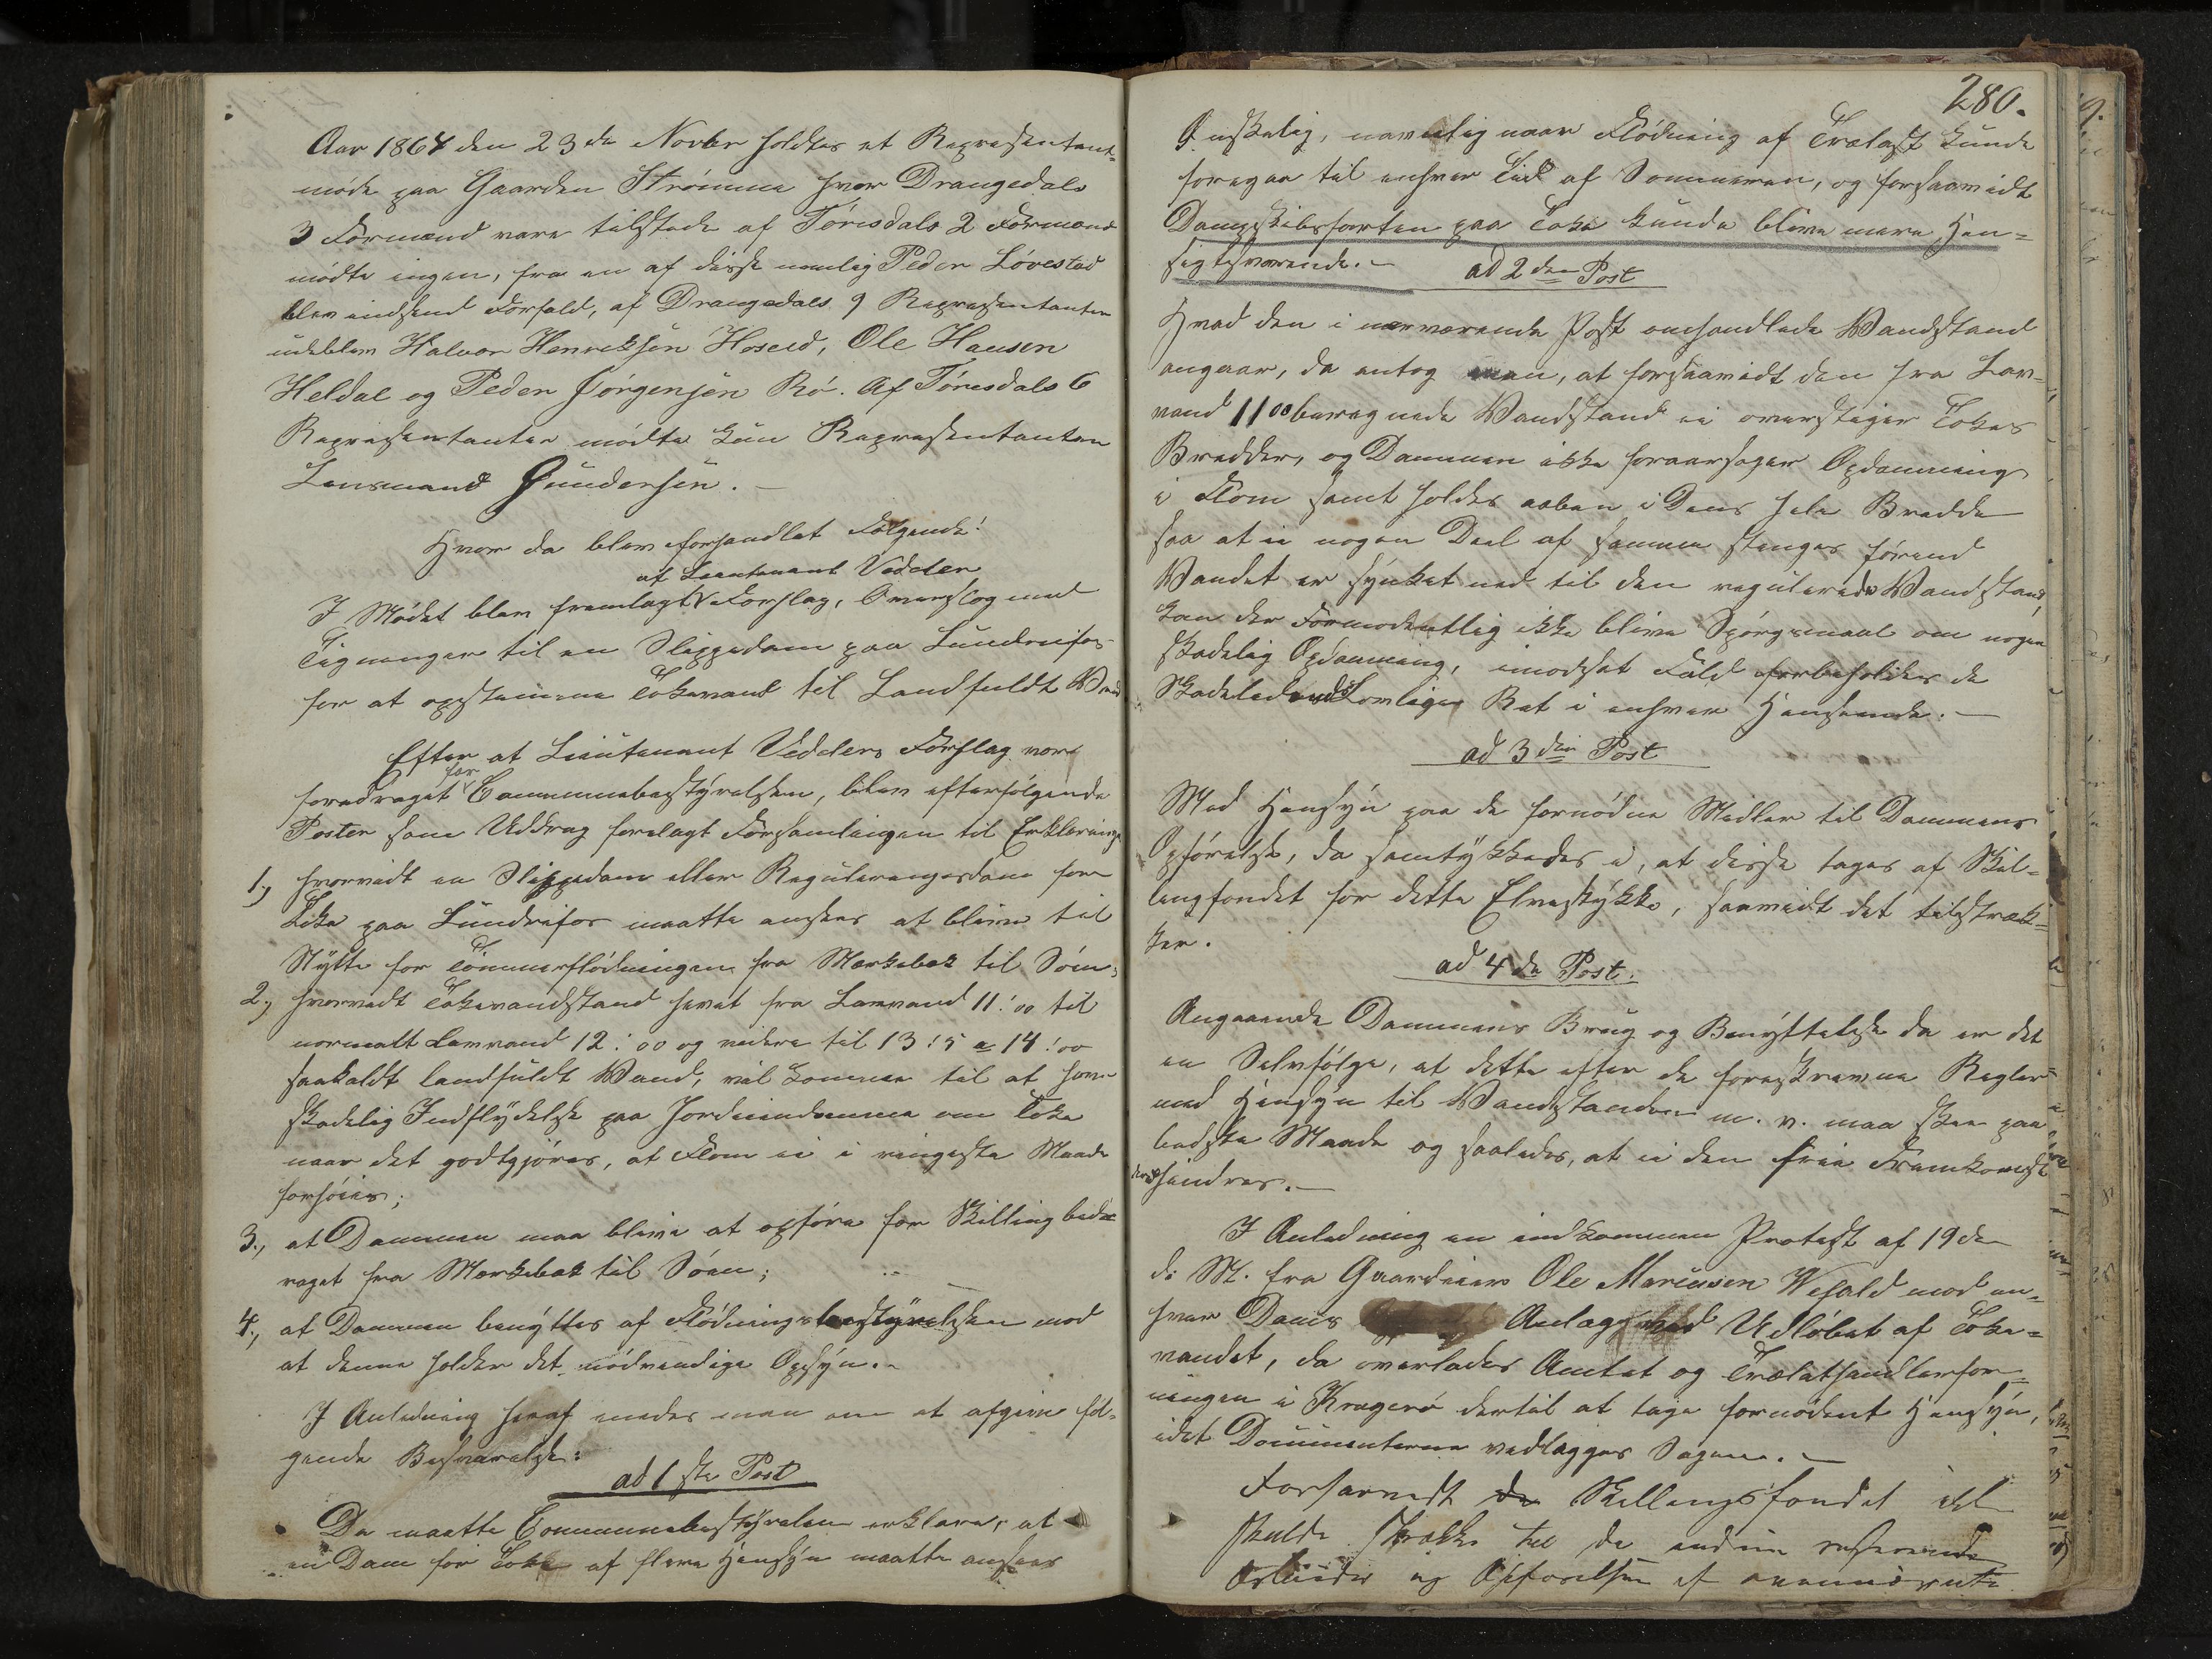 Aar 1864 den 23de Novbr holdtes et Repræsentant-
møde paa Gaarden Strømme hvor Drangedals
3 Formænd vare tilstede af Tørrisdals 2 Formænd
mødte ingen, fra en af disse nemlig Peder Løvestad
blev indsendt Forfald, af Drangedals 9 Repræsentanter
udeblev Halvor Henriksøn Hoseid, Ole Hansen
Heldal og Peder Jørgensen Rø. Af Tørrisdals 6
Repræsentanter mødte kun Repræsentanten
Lensmand Gundersen. —
Hvor da blev forhandlet Følgende:
af Lieutenant Vedeler
I Mødet blev fremlagt Forslag, Overslag med
Tegninger til en Slippedam paa Lundreifos
for at opstemme Tokevand til Landfuldt Vand
Efter at Lieutenant Vedelers Forslag var
foredraget for Communebestyrelsen, blev efterfølgende
Poster som Uddrag forelagt Forsamlingen til Erklæring
1., hvorvidt en Slippedam eller Reguleringsdam for
Toke paa Lundreifos maatte ansees at blive til
Nytte for Tømmerflødningen fra Mærkebæk til Søen;
2., hvorvidt Tokevandstand hævet fra Lavvand 11!00 til
normalt Lavvand 12!00 og videre til 13!5 a 14!00
saakaldt landfuldt Vand, vil komme til at have
skadelig Indflydelse paa Jordeiendomme om Toke
naar det godtgjøres, at Flom ei i ringeste Maade
forhøies;
3., at Dammen maa blive at opføre for Skillingbed-
raget fra Mærkebæk til Søen;
4., at Dammen benyttes af Flødningsbestyrelsen mod
at denne holder det nødvendige Opsyn. –
I Anledning heraf enedes man om at afgive føl-
gende Besvarelse:
ad 1ste Post
Da maatte Communebestyrelsen erklære, at
en Dam for Toke af flere Hensyn maatte ansees
280.
Ønskelig, navnlig naar Flødning af Trælast kunde
foregaa til enhver Tid af Sommeren, og forsaavidt
Dampskibsfarten paa Toke kunde blive mere Hen-
sigtsvarende. – ad 2den Post
Hvad den i nærværende Post omhandlede Vandstand
angaar, da antog man, at forsaavidt den fra Lav-
vand 1100 beregnede Vandstand ei overstiger Tokes
Bredder, og Dammen ikke foraarsager Opdæmning
i Flom samt holdes aaben i Dens hele Bredde
saa at ei nogen Deel af samme stenges førend
Vandet er synket ned til den regulerede Vandstand,
kan der Formodentlig ikke blive Spørgsmaal om nogen
skadelig Opdæmning, imodsat Fald forbeholdes de
Skadelidende Lovlige Ret i enhver Henseende. —
ad 3die Post
Med Hensyn paa de fornødne Midler til Dammens
Opførelse, da samtykkedes i, at disse tages af Skil-
lingfondet for dette Elvestykke, saavidt det tilstræk-
ker.
ad 4de Post:
Angaaende Dammens Brug og Benyttelse da er det
en Selvfølge, at dette efter de foreskrevne Regler
med Hensyn til Vandstanden m. v. maa skee paa
bedste Maade og saaledes, at ei den frie Fremkomst
hindres. —
I Anledning en indkommen Protest af 19de
d: M. fra Gaardeier Ole Mareusen Wefald mod en-
hver Dams Anlæg ved Udløbet af Toke-
vandet, da overlades Amtet og Trælasthandlerfor-
ningen i Kragerø dertil at tage fornødent Hensyn,
idet Documenterne vedlægges Sagen. —
Forsaavidt Skillingsfondet ikke
skulde strække til de endnu resterende
Arbeider og Opførelsen af